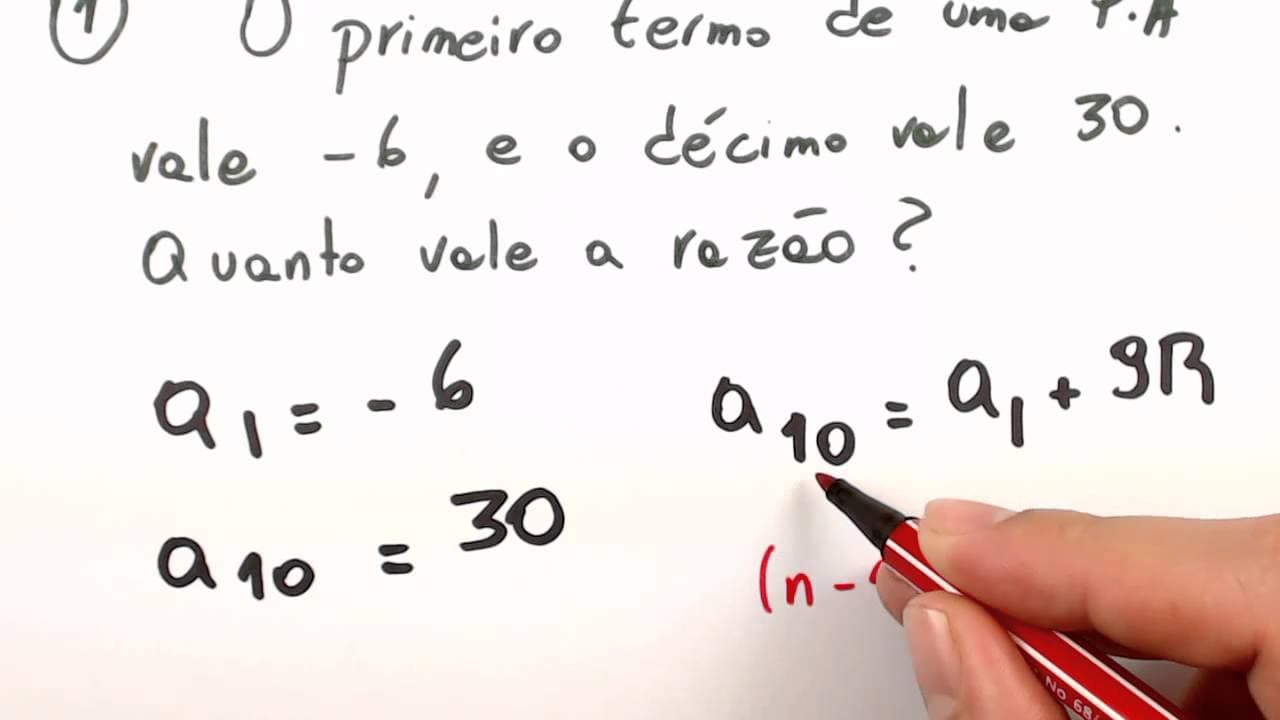 1 O primeiro termo de uma P.A
vale -6, e o décimo vale 30.
Quanto vale a razão?
a1 = -6
a10 = a1 + 9R
a10 = 30
(n -
No 68/